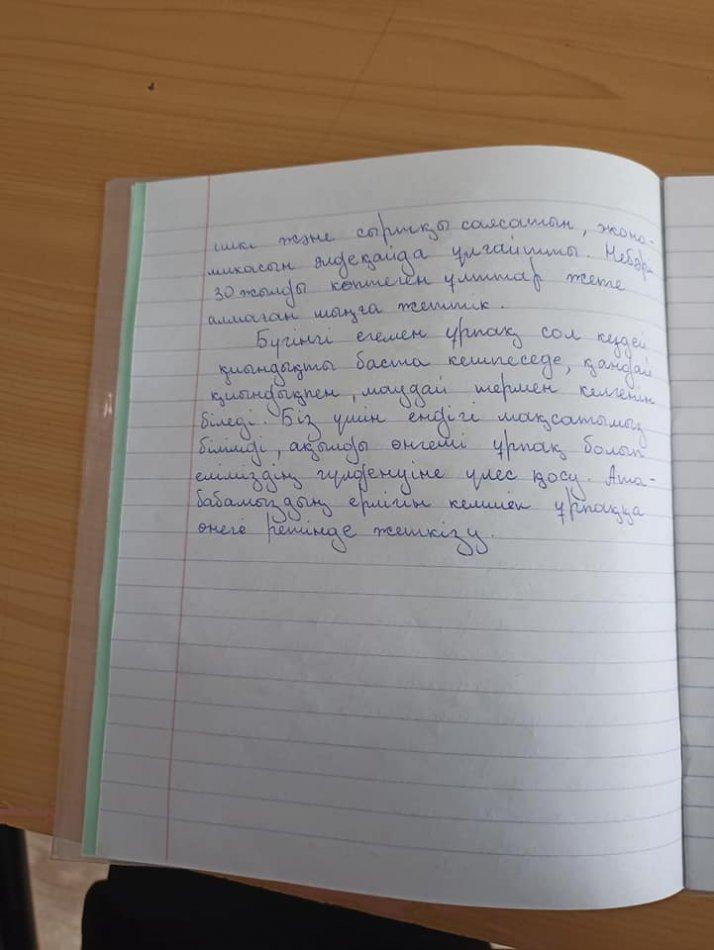 ішкі және сыртқы саясатын, эконо-
микасын әлдеқайда ұлғайтты. Небәрі
30 жылды көптеген ұлттар жете
алмаған шыңға жеттік.
Бүгінгі егемен ұрпақ сол кездей
қиындықты баста кешпеседе, қандай
қиындықпен, маңдай термен келгенін
біледі. Біз үшін ендігі мақсатымыз
білімді, ақылды өнгелі ұрпақ болып
еліміздің гүлденуіне үлес қосу. Ата-
бабамыздың ерлігін келшек ұрпаққа
өнеге ретінде жеткізу.